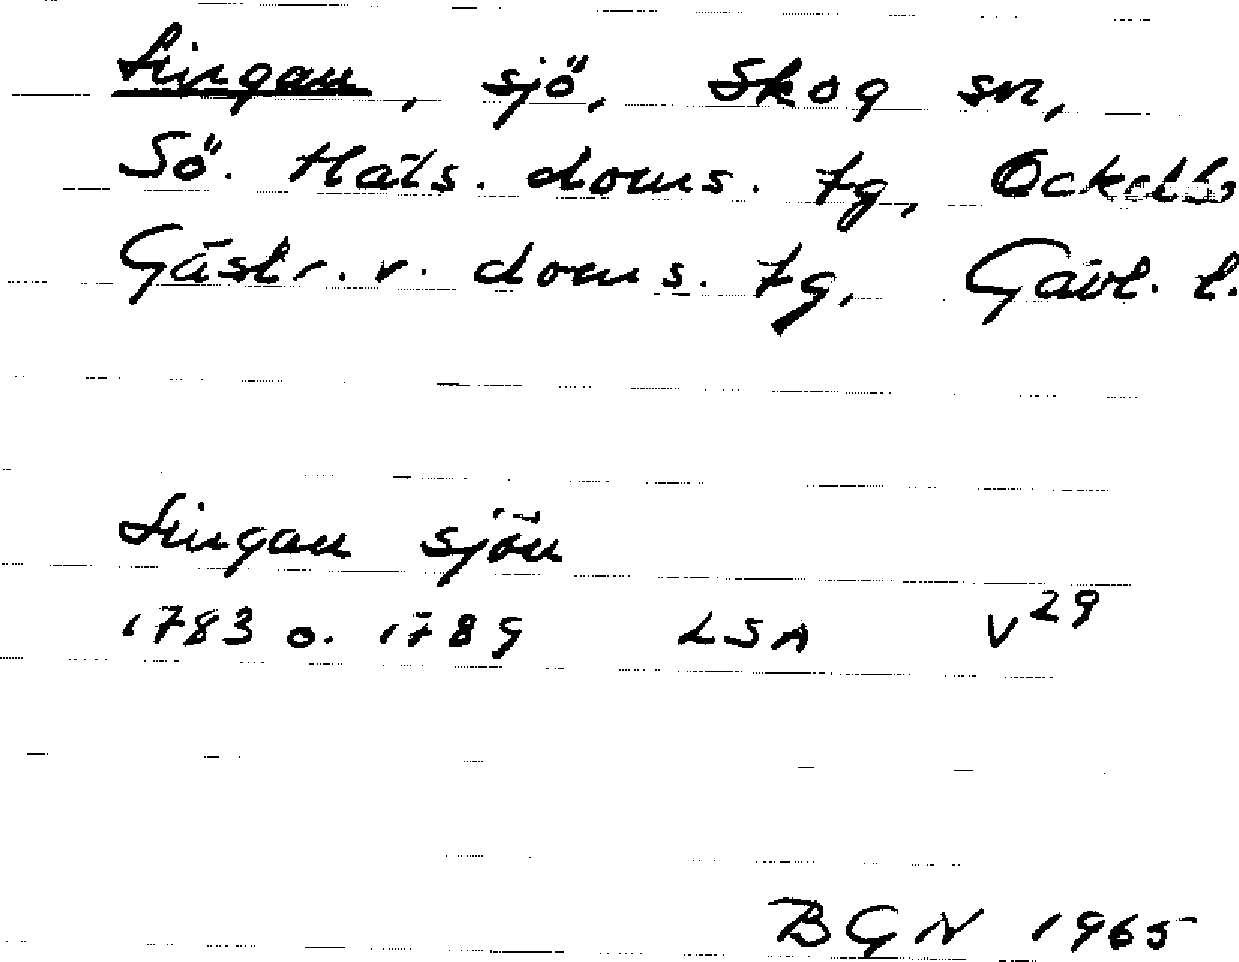 Lingan, sjö, Skog sn,
Sö. Häls. doms. tg, Ockelb
Gästr. v. doms. tg, Gävl. l.
Lingan sjön
1783 o. 1789 LSA V29
BGN 1965